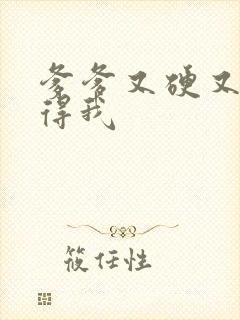 爹爹又硬又
得我
筱任性